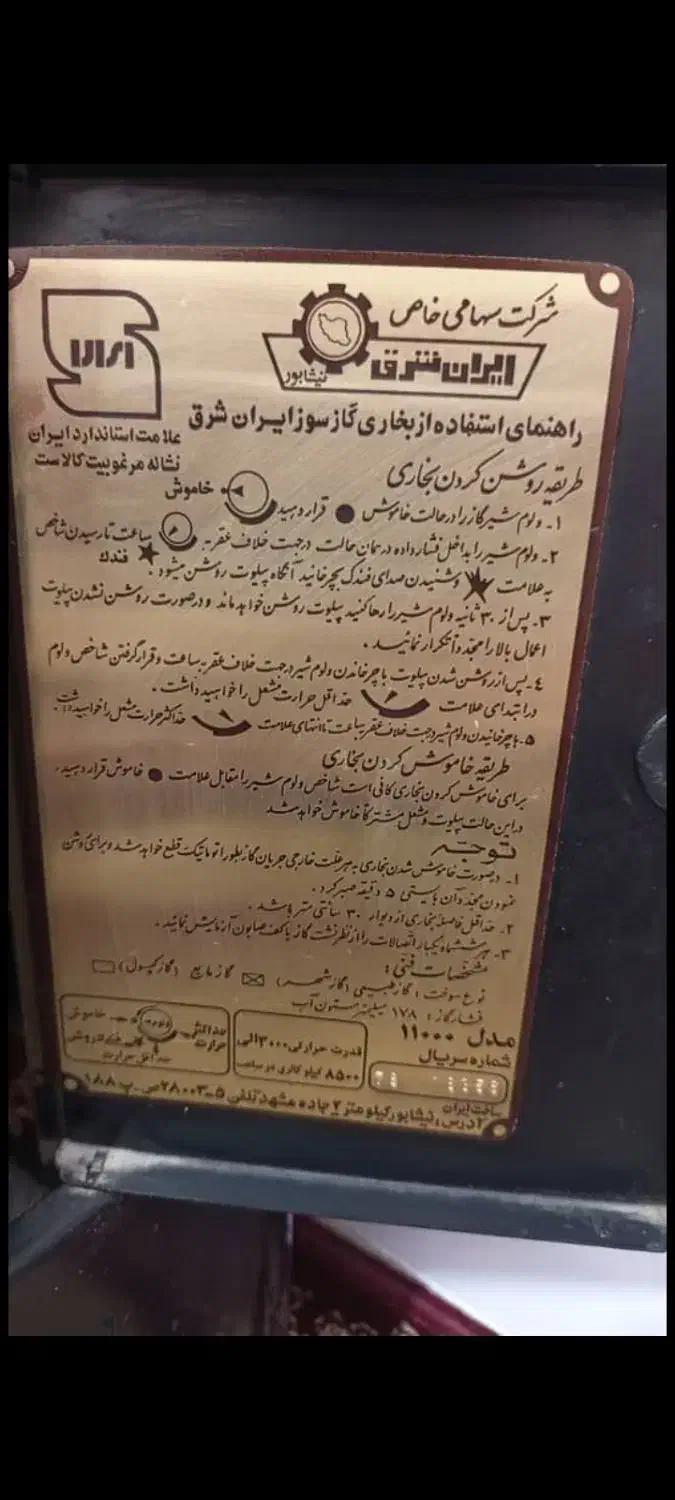 شرکت سهامی خاص
ایران شرق
نیشابور
علامت استاندارد ایران
نشانه مرغوبیت کالاست
راهنمای استفاده از بخاری گاز سوز ایران شرق
طریقه روشن کردن بخاری
۱- ولوم شیر گاز را در حالت خاموش ● قرار دهید
خاموش
۲- ولوم شیر را بداخل فشار داده در همان حالت در جهت خلاف عقربه ساعت تا رسیدن شاخص
به علامت و شنیدن صدای فندک بچرخانید آنگاه پیلوت روشن میشود.
فندک
۳- پس از ۳۰ ثانیه ولوم شیر را رها کنید پیلوت روشن خواهد ماند و در صورت روشن نشدن پیلوت
اعمال بالا را مجدداً تکرار نمائید.
۴- پس از روشن شدن پیلوت با چرخاندن ولوم شیر در جهت خلاف عقربه ساعت و قرار گرفتن شاخص ولوم
در ابتدای علامت حداقل حرارت مشعل را خواهید داشت.
۵- با چرخانیدن ولوم شیر در جهت خلاف عقربه ساعت تا انتهای علامت حداکثر حرارت مشعل را خواهید داشت.
طریقه خاموش کردن بخاری
برای خاموش کردن بخاری کافی است شاخص ولوم شیر را مقابل علامت ● خاموش قرار دهید.
در این حالت پیلوت و مشعل مشترکاً خاموش خواهد شد
توجه
۱- در صورت خاموش شدن بخاری به هر علت خارجی جریان گاز بطور اتوماتیک قطع خواهد شد و برای روشن
نمودن مجدد آن بایستی ۵ دقیقه صبر کرد.
۲- حداقل فاصله بخاری از دیوار ۳۰ سانتی متر باشد.
۳- هر ششماه یکبار اتصالات را از نظر نشت گاز با کف صابون آزمایش نمائید.
مشخصات فنی:
نوع سوخت: گاز طبیعی (گاز شهر) گاز مایع (گاز کپسول)
فشار گاز: ۱۷۸ میلیمتر ستون آب
مدل ۱۱۰۰۰
شماره سریال
قدرت حرارتی ۳۰۰۰ الی
۸۵۰۰ کیلو کالری در ساعت
حداکثر حرارت
خاموش
حداقل حرارت
ساخت ایران
آدرس: نیشابور کیلومتر ۲ جاده مشهد تلفن ۵-۲۸۰۰۳ ص-پ ۱۸۸